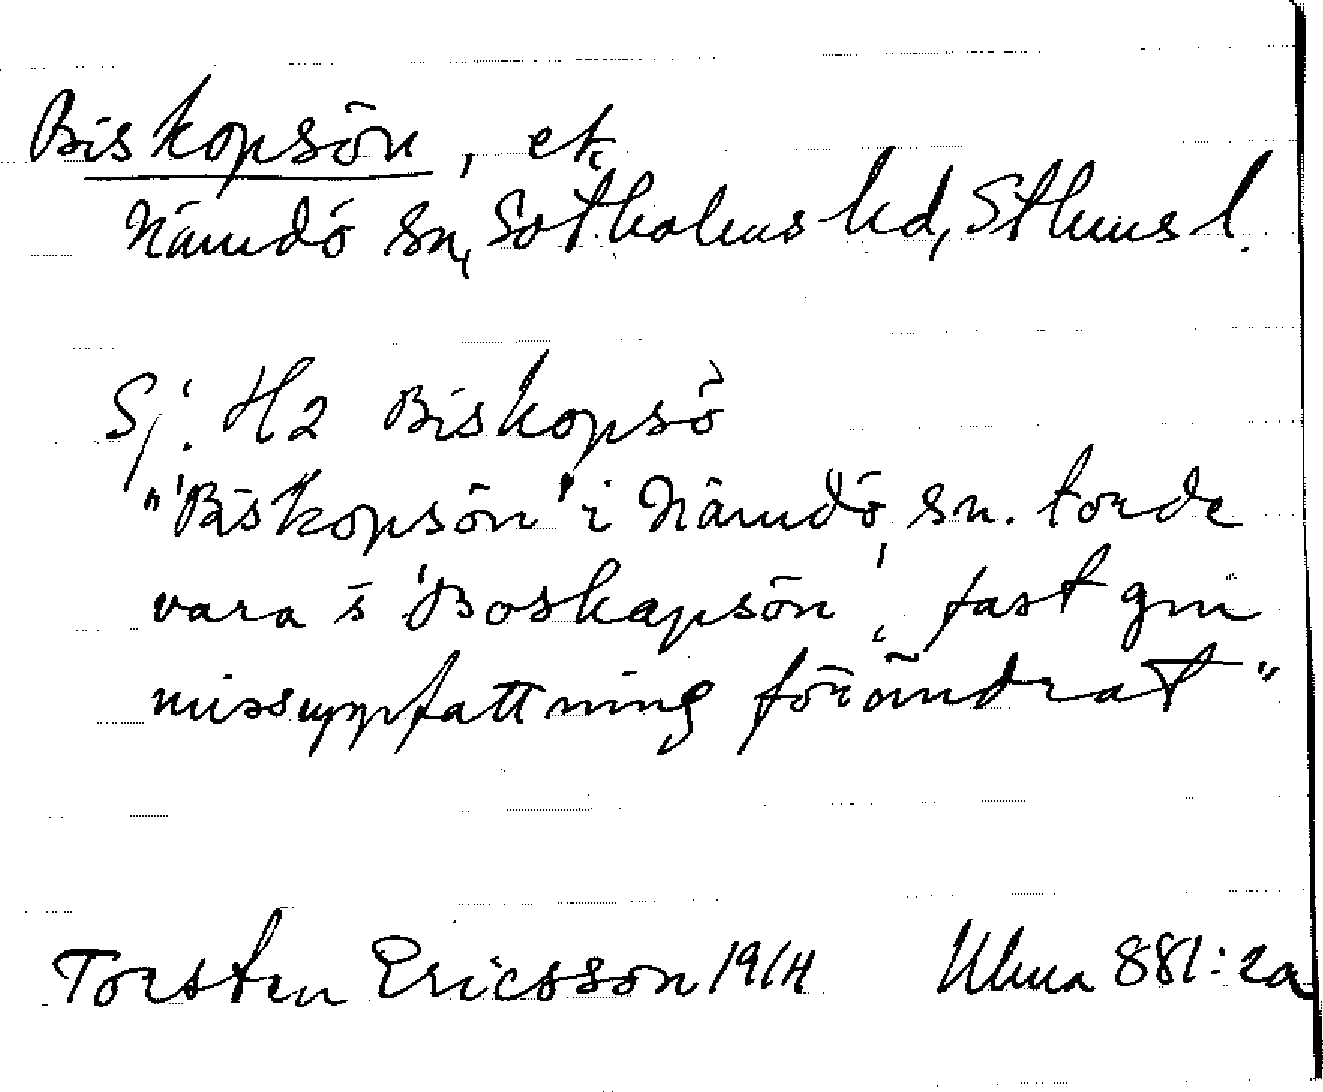 Biskopsön, ek
Nämdö sn, Sotholms hd, Sthms l.
Sj. H2 Biskopsö
"'Biskopsön' i Nämdö sn. torde
vara s 'Boskapsön', fast gm
missuppfattning förändrat"
Torsten Ericsson 1914 Ulma 881:2a